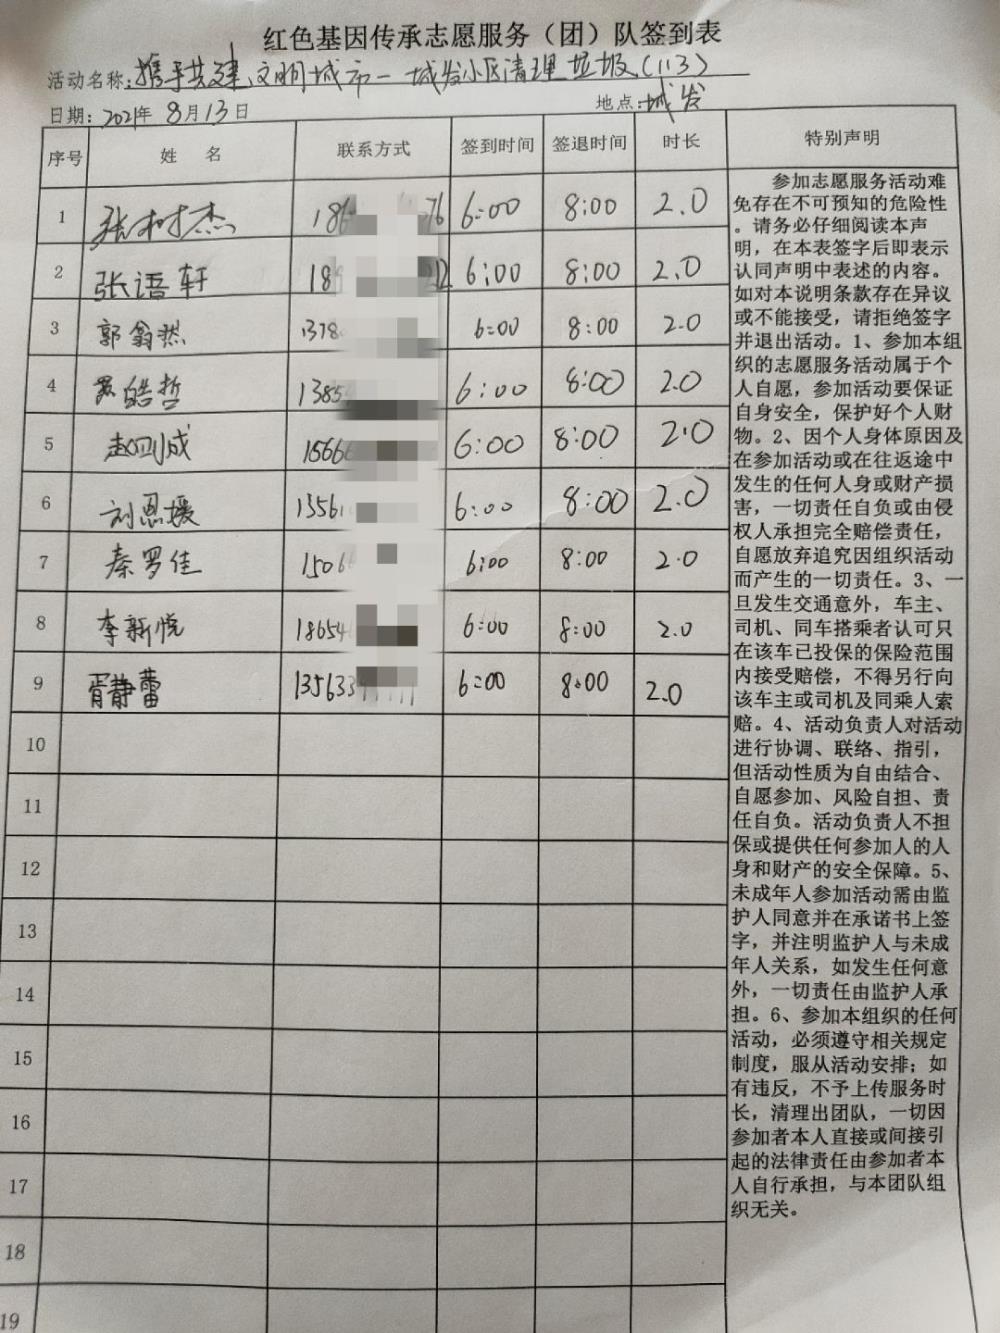 红色基因传承志愿服务（团）队签到表
活动名称：携手共建文明城市一城发小区清理垃圾（113）
日期：2021年8月13日 地点：城发
序号 姓 名 联系方式 签到时间 签退时间 时长 特别声明
1 张树杰 186 76 6:00 8:00 2.0
2 张语轩 18 12 6:00 8:00 2.0
3 郭翕然 1378 6:00 8:00 2.0
4 皓哲 1385 6:00 8:00 2.0
5 赵 成 15666 6:00 8:00 2.0
6 刘恩媛 13561 6:00 8:00 2.0
7 秦罗佳 1506 6:00 8:00 2.0
8 李新悦 18654 6:00 8:00 2.0
9 静蕾 135633 6:00 8:00 2.0
10
11
12
13
14
15
16
17
18
19
参加志愿服务活动难
免存在不可预知的危险性
。请务必仔细阅读本声
明，在本表签字后即表示
认同声明中表述的内容。
如对本说明条款存在异议
或不能接受，请拒绝签字
并退出活动。1、参加本组
织的志愿服务活动属于个
人自愿，参加活动要保证
自身安全，保护好个人财
物。2、因个人身体原因及
在参加活动或在往返途中
发生的任何人身或财产损
害，一切责任自负或由侵
权人承担完全赔偿责任，
自愿放弃追究因组织活动
而产生的一切责任。3、一
旦发生交通意外，车主、
司机、同车搭乘者认可只
在该车已投保的保险范围
内接受赔偿，不得另行向
该车主或司机及同乘人索
赔。4、活动负责人对活动
进行协调、联络、指引，
但活动性质为自由结合、
自愿参加、风险自担、责
任自负。活动负责人不担
保或提供任何参加人的人
身和财产的安全保障。5、
未成年人参加活动需由监
护人同意并在承诺书上签
字，并注明监护人与未成
年人关系，如发生任何意
外，一切责任由监护人承
担。6、参加本组织的任何
活动，必须遵守相关规定
制度，服从活动安排；如
有违反，不予上传服务时
长，清理出团队，一切因
参加者本人直接或间接引
起的法律责任由参加者本
人自行承担，与本团队组
织无关。